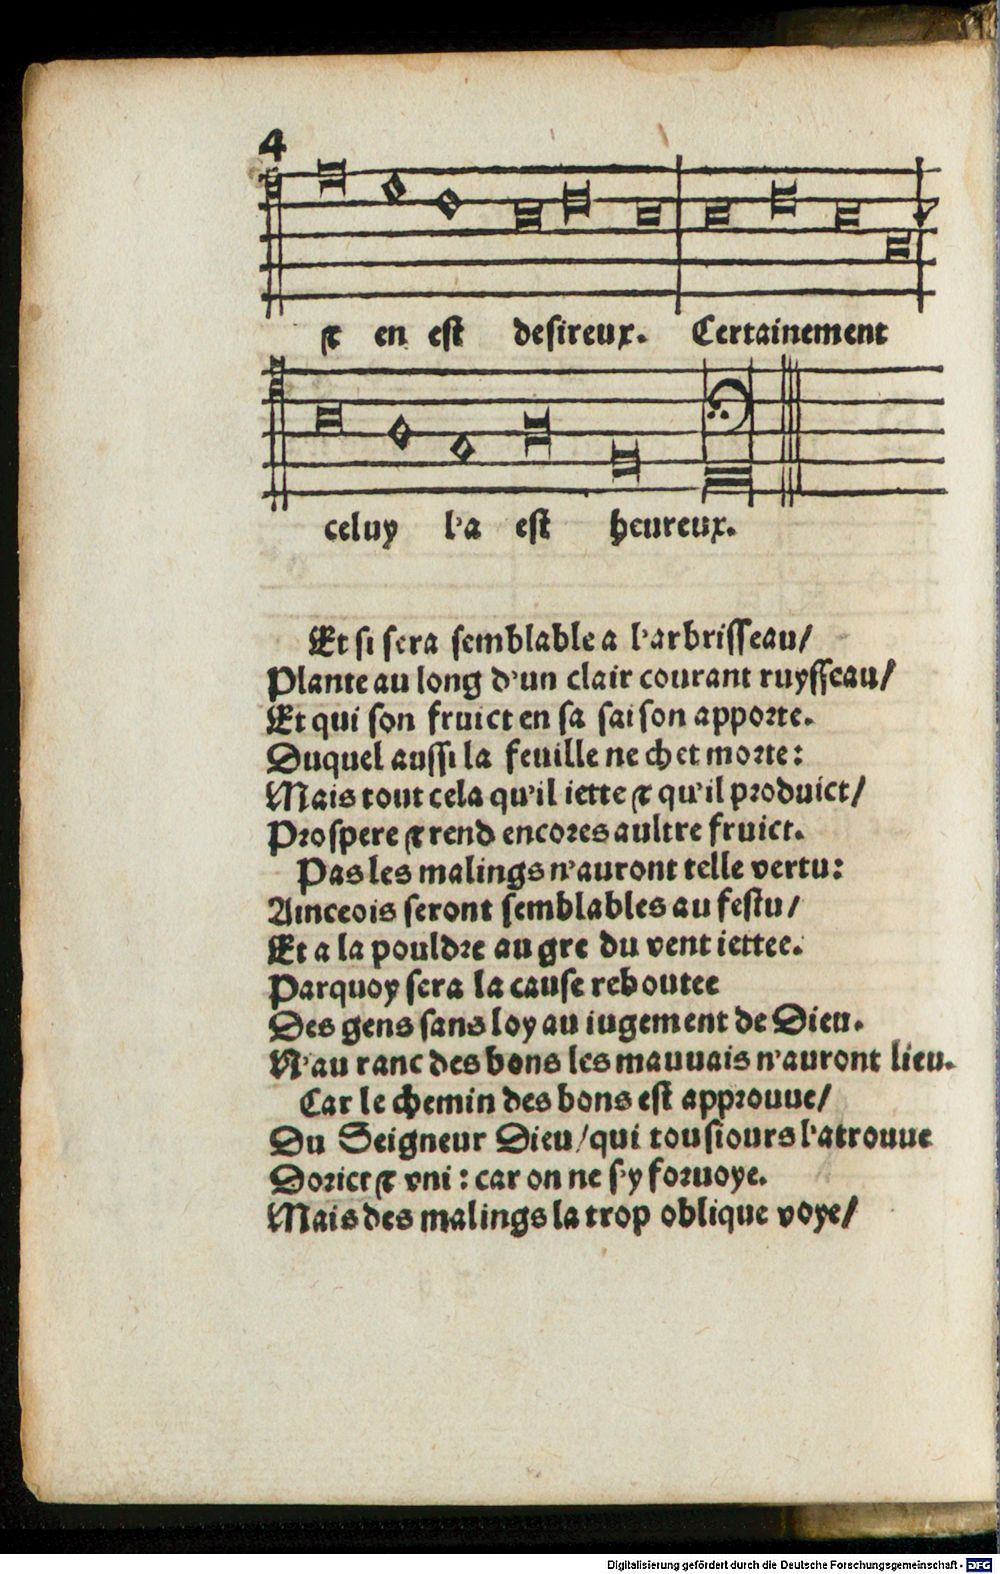 4
⁊ en est desireux. Certainement
celuy l'a est heureux.
Et si sera semblable a l'arbrisseau/
Plante au long d'un clair courant ruysseau/
Et qui son fruict en sa saison apporte.
Duquel aussi la feuille ne chet morte:
Mais tout cela qu'il iette ⁊ qu'il produict/
Prospere ⁊ rend encores aultre fruict.
Pas les malings n'auront telle vertu:
Ainceois seront semblables au festu/
Et a la pouldre au gre du vent iettee.
Parquoy sera la cause reboutee
Des gens sans loy au iugement de Dieu.
N'au ranc des bons les mauuais n'auront lieu.
Car le chemin des bons est approuue/
Du Seigneur Dieu/qui tousiours l'a trouue
Dorict ⁊ vni: car on ne s'y foruoye.
Mais des malings la trop oblique voye/
Digitalisierung gefördert durch die Deutsche Forschungsgemeinschaft - DFG